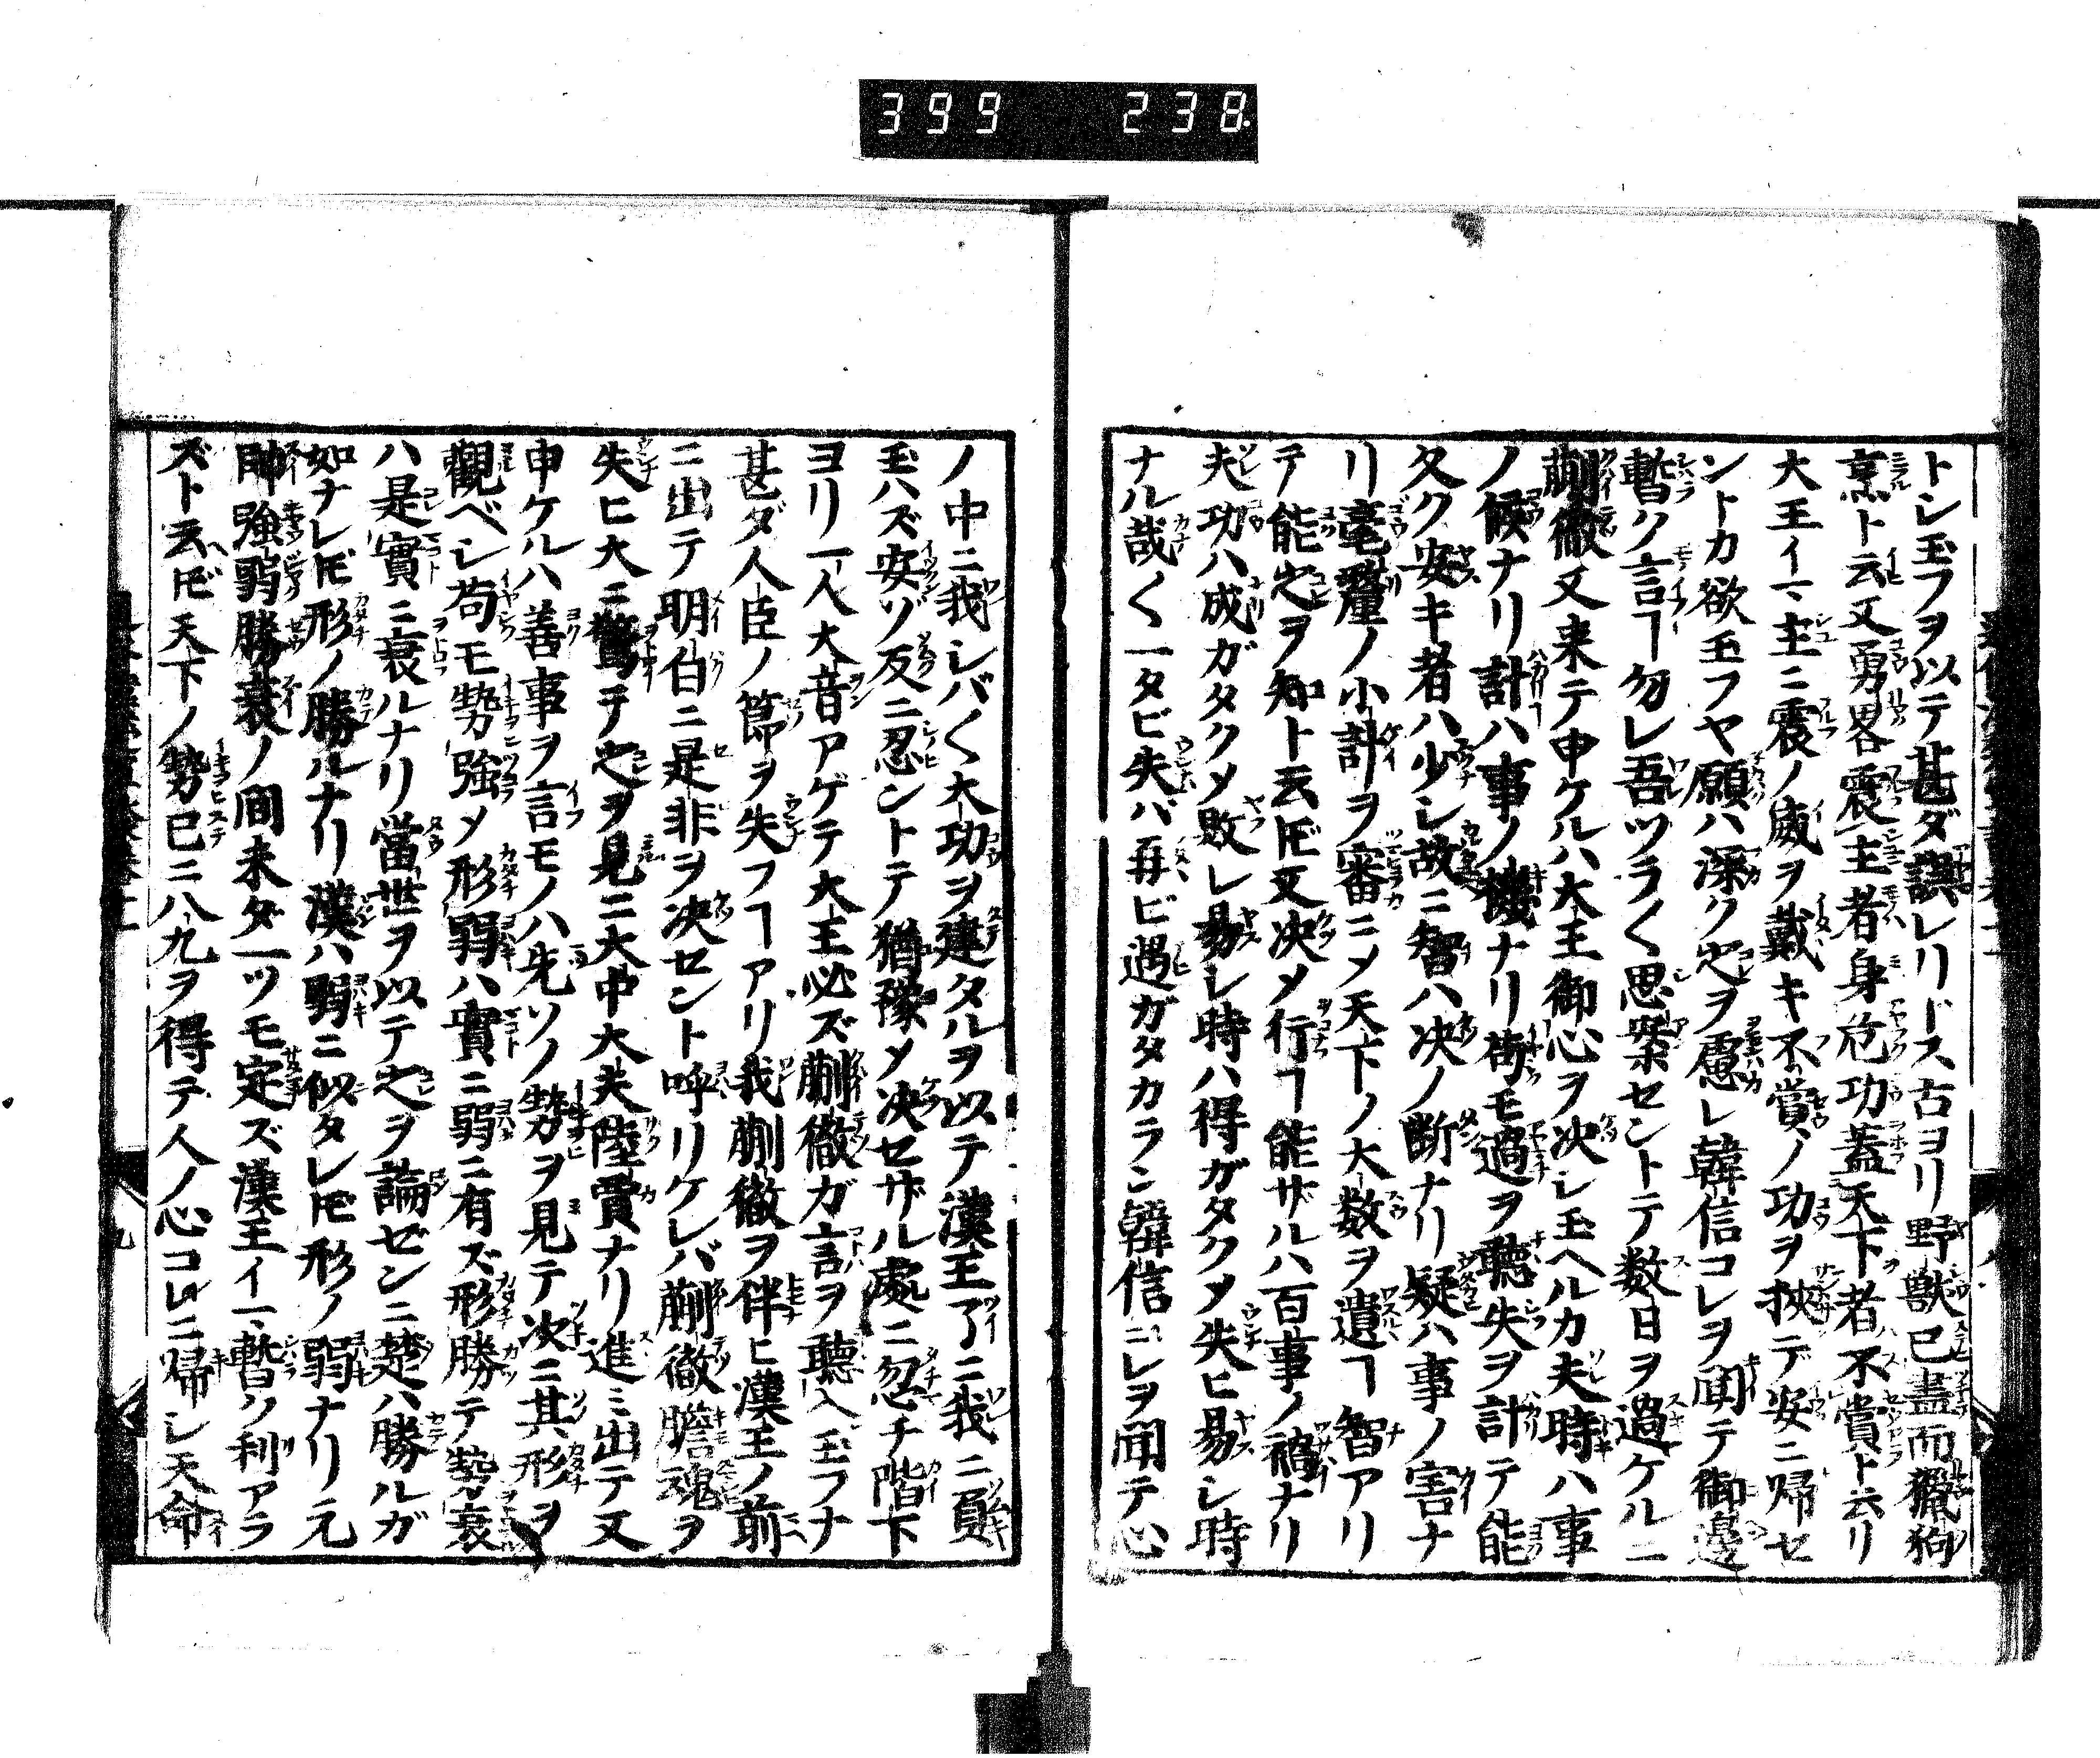 399 238.
トシ玉フヲ以テ甚ダ誤レリトス古ヨリ野獣已盡而獵狗
烹ト云又勇畧震主者身危功蓋天下者不賞ト云リ
大王イマ主ニ震ノ威ヲ戴キ不賞ノ功ヲ挾デ安ニ帰セ
ントカ欲玉フヤ願ハ深ク之ヲ慮レ韓信コレヲ聞テ御邊
暫ク言ヿ勿レ吾ツラ〱思案セントテ数日ヲ過ケルニ
蒯徹又来テ申ケルハ大王御心ヲ决シ玉ヘルカ夫時ハ事
ノ候ナリ計ハ事ノ機ナリ モ過ヲ聴失ヲ計テ能
久ク安キ者ハ少シ故ニ智ハ决ノ断ナリ疑ハ事ノ害ナ
リ毫釐ノ小計ヲ審ニメ天下ノ大数ヲ遺ヿ智アリ
テ能之ヲ知ト云𪜈又决メ行ヿ能ザルハ百事ノ禍ナリ
夫功ハ成ガタクメ敗レ易シ時ハ得ガタクメ失ヒ易シ時
ナル哉〱一タビ失バ再ビ遇ガタカラン韓信コレヲ聞テ心
ノ中ニ我シバ〱大功ヲ建タルヲ以テ漢王了ニ我ニ負
玉ハズ安ゾ反ニ忍ントテ猶豫メ决セザル處ニ忽チ階下
ヨリ一人大音アゲテ大王必ズ蒯徹ガ言ヲ聽入玉フナ
甚ダ人臣ノ節ヲ失フヿアリ我蒯徹ヲ伴ヒ漢王ノ前
ニ出テ明白ニ是非ヲ决セント呼リケレバ蒯徹膽魂ヲ
失ヒ大ニ驚テ之ヲ見ニ大中大夫陸賈ナリ進ミ出テ又
申ケルハ善事ヲ言モノハ先ソノ勢ヲ見テ次ニ其形ヲ
觀ベシ苟モ勢強メ形弱ハ實ニ弱ニ有ズ形勝テ勢衰
ハ是實ニ衰ルナリ當世ヲ以テ之ヲ論ゼンニ楚ハ勝ルガ
如ナレ𪜈形ノ勝ルナリ漢ハ弱ニ似タレ𪜈形ノ弱ナリ元
帥強弱勝衰ノ間未ダ一ツモ定ズ漢王イマ暫ク利アラ
ズト云𪜈天下ノ勢已ニ八九ヲ得テ人ノ心コレニ帰シ天命